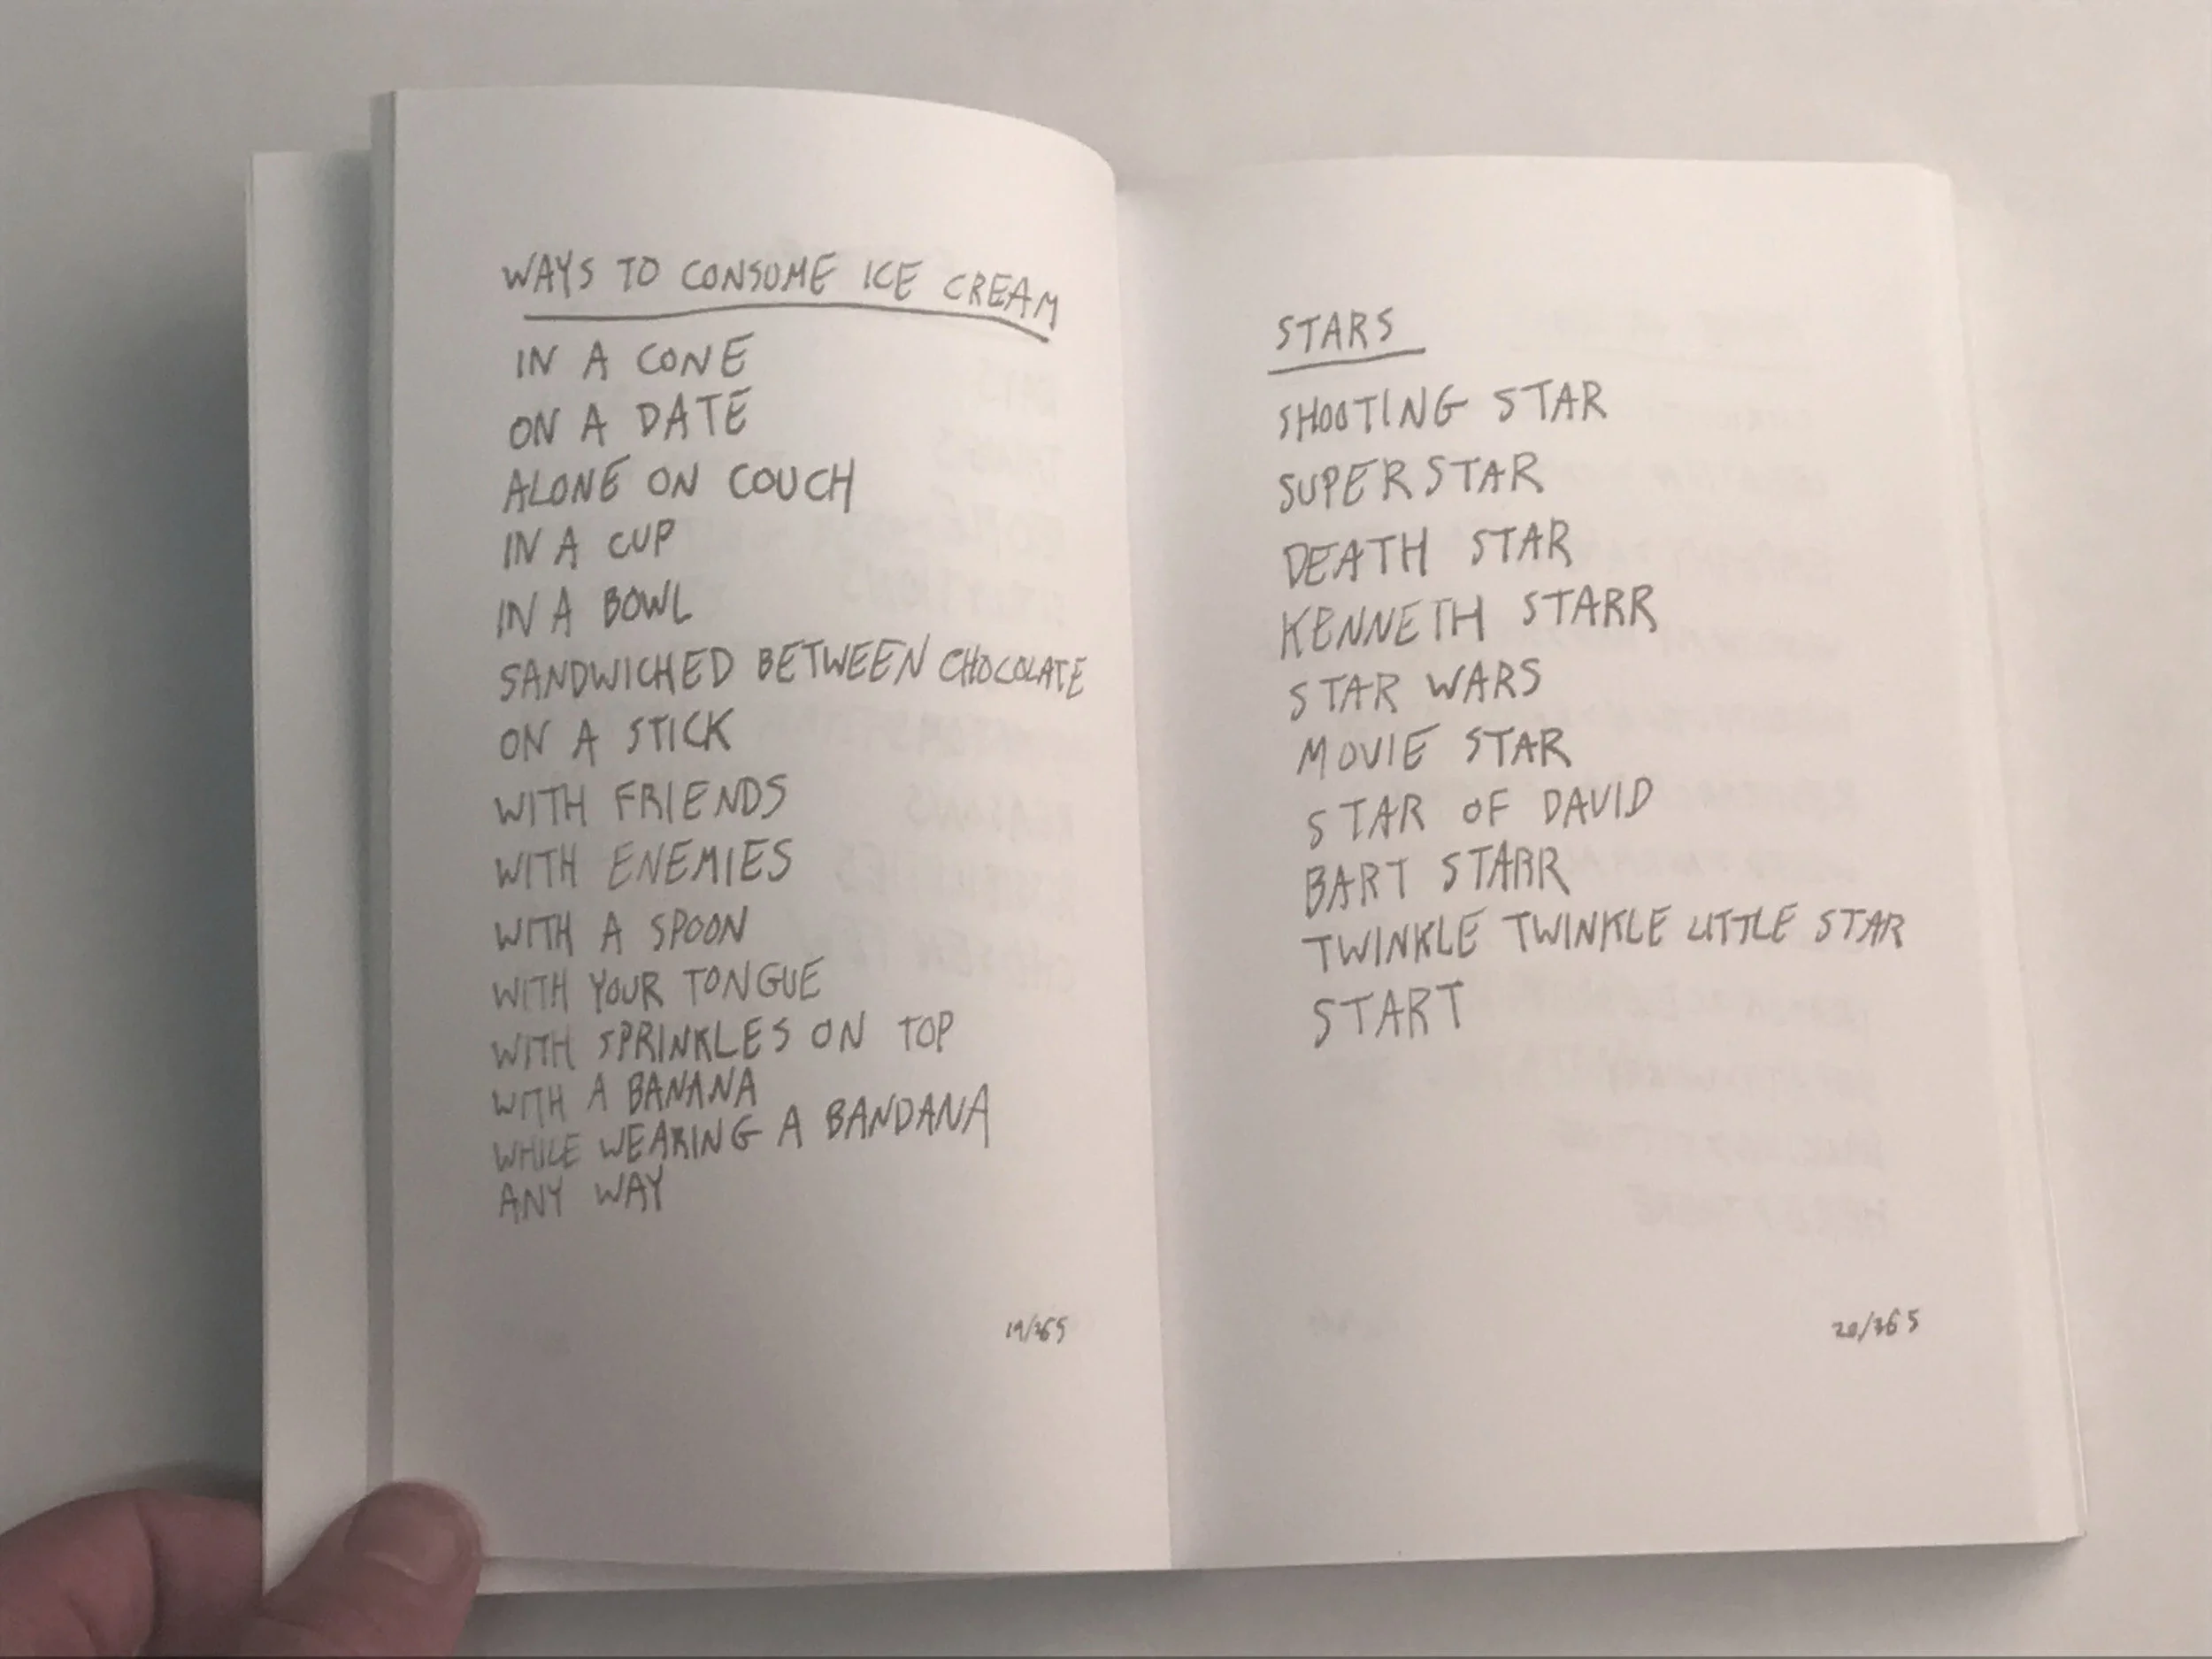 WAYS TO CONSUME ICE CREAM
IN A CONE
ON A DATE
ALONE ON COUCH
IN A CUP
IN A BOWL
SANDWICHED BETWEEN CHOCOLATE
ON A STICK
WITH FRIENDS
WITH ENEMIES
WITH A SPOON
WITH YOUR TONGUE
WITH SPRINKLES ON TOP
WITH A BANANA
WHILE WEARING A BANDANA
ANY WAY
19/365
STARS
SHOOTING STAR
SUPERSTAR
DEATH STAR
KENNETH STARR
STAR WARS
MOVIE STAR
STAR OF DAVID
BART STARR
TWINKLE TWINKLE LITTLE STAR
START
20/365